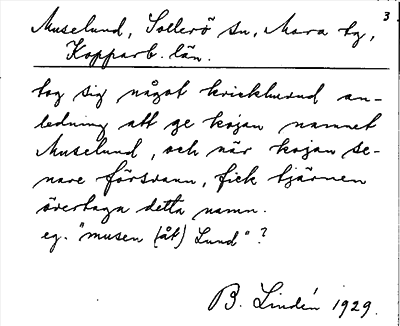 3
Muselund, Sollerö sn, Mora tg,
Kopparb. län.
tog sig något kvickhuvud an-
ledning att ge kojan namnet
Muselund, och när kojan se-
nare försvann, fick tjärnen
övertaga detta namn.
eg. "musen (åt) Lund"?
B. Lindén 1929.